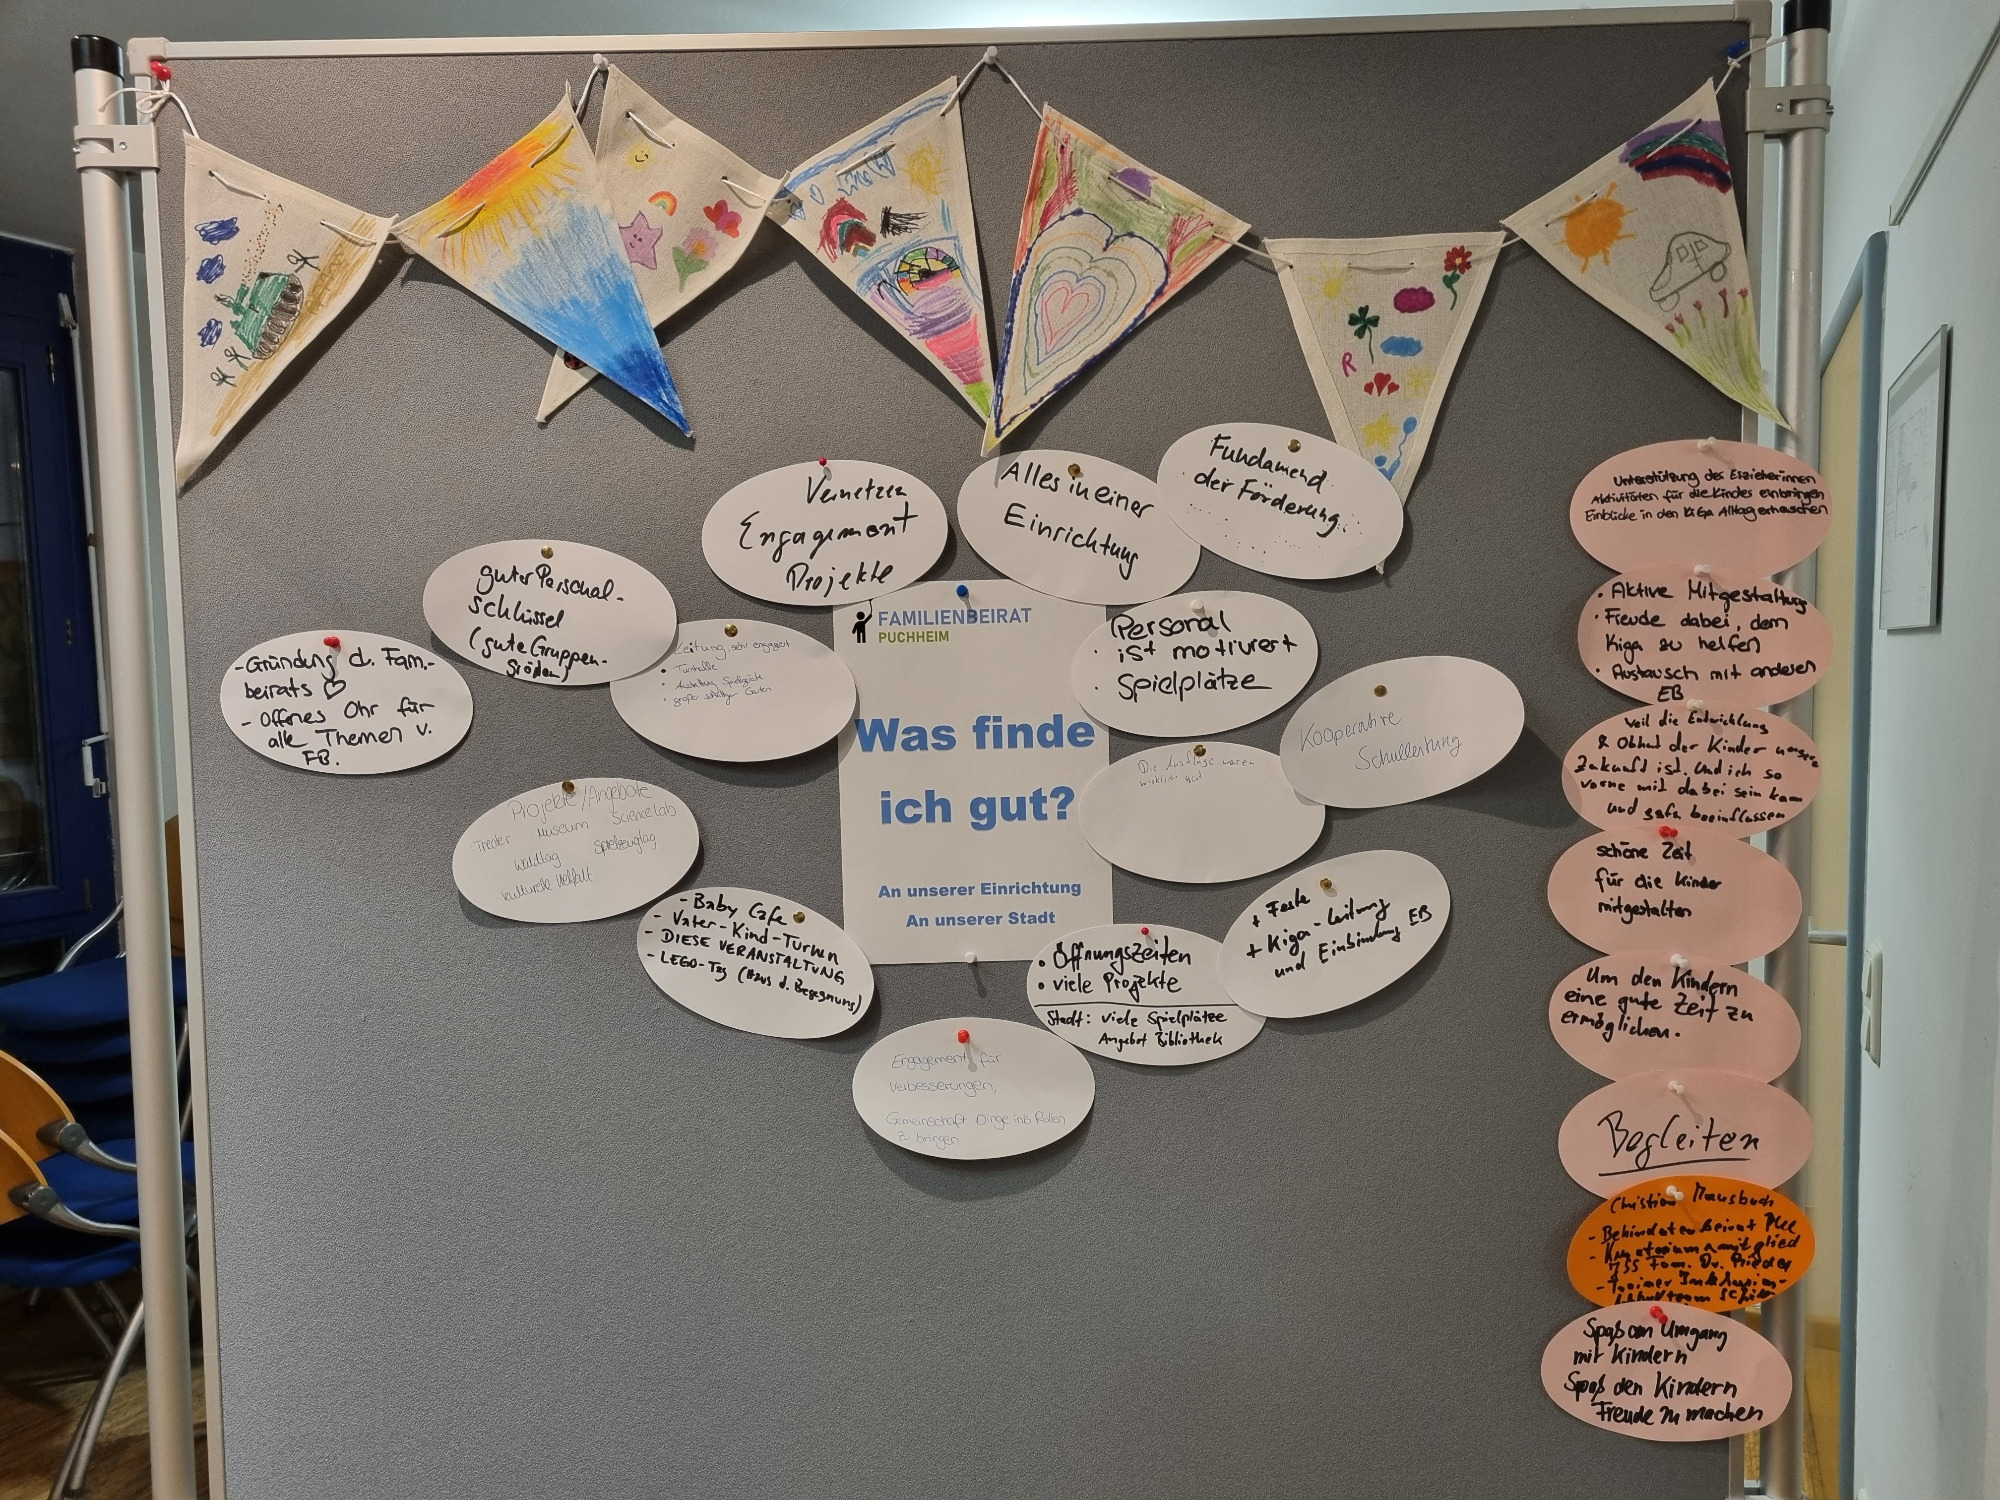 FAMILIENBEIRAT
PUCHHEIM
Was finde
ich gut?
An unserer Einrichtung
An unserer Stadt
-Gründung d. Fam.-
beirats ♡
- Offenes Ohr für
alle Themen v.
FB.
guter Personal-
schlüssel
(gute Gruppen-
Leitung, sehr engagiert
• Turnhalle
• Ausstattung Spielgeräte
• großer schattiger Garten
Vernetzen
Engagement
Projekte
Alles in einer
Einrichtung
Fundamend
der Förderung.
Personal
· ist motiviert
· Spielplätze
Kooperative
Schulleitung
Die Ausflüge waren
wirklich gut
Projekte/Angebote
Theater Museum ScienceLab
Waldtag Spielzeugtag
kulturelle Vielfalt
- Baby Cafe
- Vater-Kind-Turnen
- DIESE VERANSTALTUNG
- LEGO-Tag (Haus d. Begegnung)
+ Feste
+ Kiga-Leitung
und Einbindung EB
• Öffnungszeiten
• viele Projekte
Stadt: viele Spielplätze
Angebot Bibliothek
Engagement für
Verbesserungen,
Gemeinschaft Dinge ins Rollen
zu bringen
Unterstützung der Erzieherinnen
Aktivitäten für die Kinder einbringen
Einblicke in den KiGa Alltag erhaschen
• Aktive Mitgestaltung
• Freude dabei, dem
Kiga zu helfen
• Austausch mit anderen
EB
Weil die Entwicklung
& Obhut der Kinder unsere
Zukunft ist. Und ich so
vorne mit dabei sein kann
und beeinflussen
schöne Zeit
für die Kinder
mitgestalten
Um den Kindern
eine gute Zeit zu
ermöglichen.
Begleiten
Christian Mausbach
- Behinderten Beirat
- Kuratoriumsmitglied
Dr.
- Trainer Inklusion-
Spaß am Umgang
mit Kindern
Spaß den Kindern
Freude zu machen
R